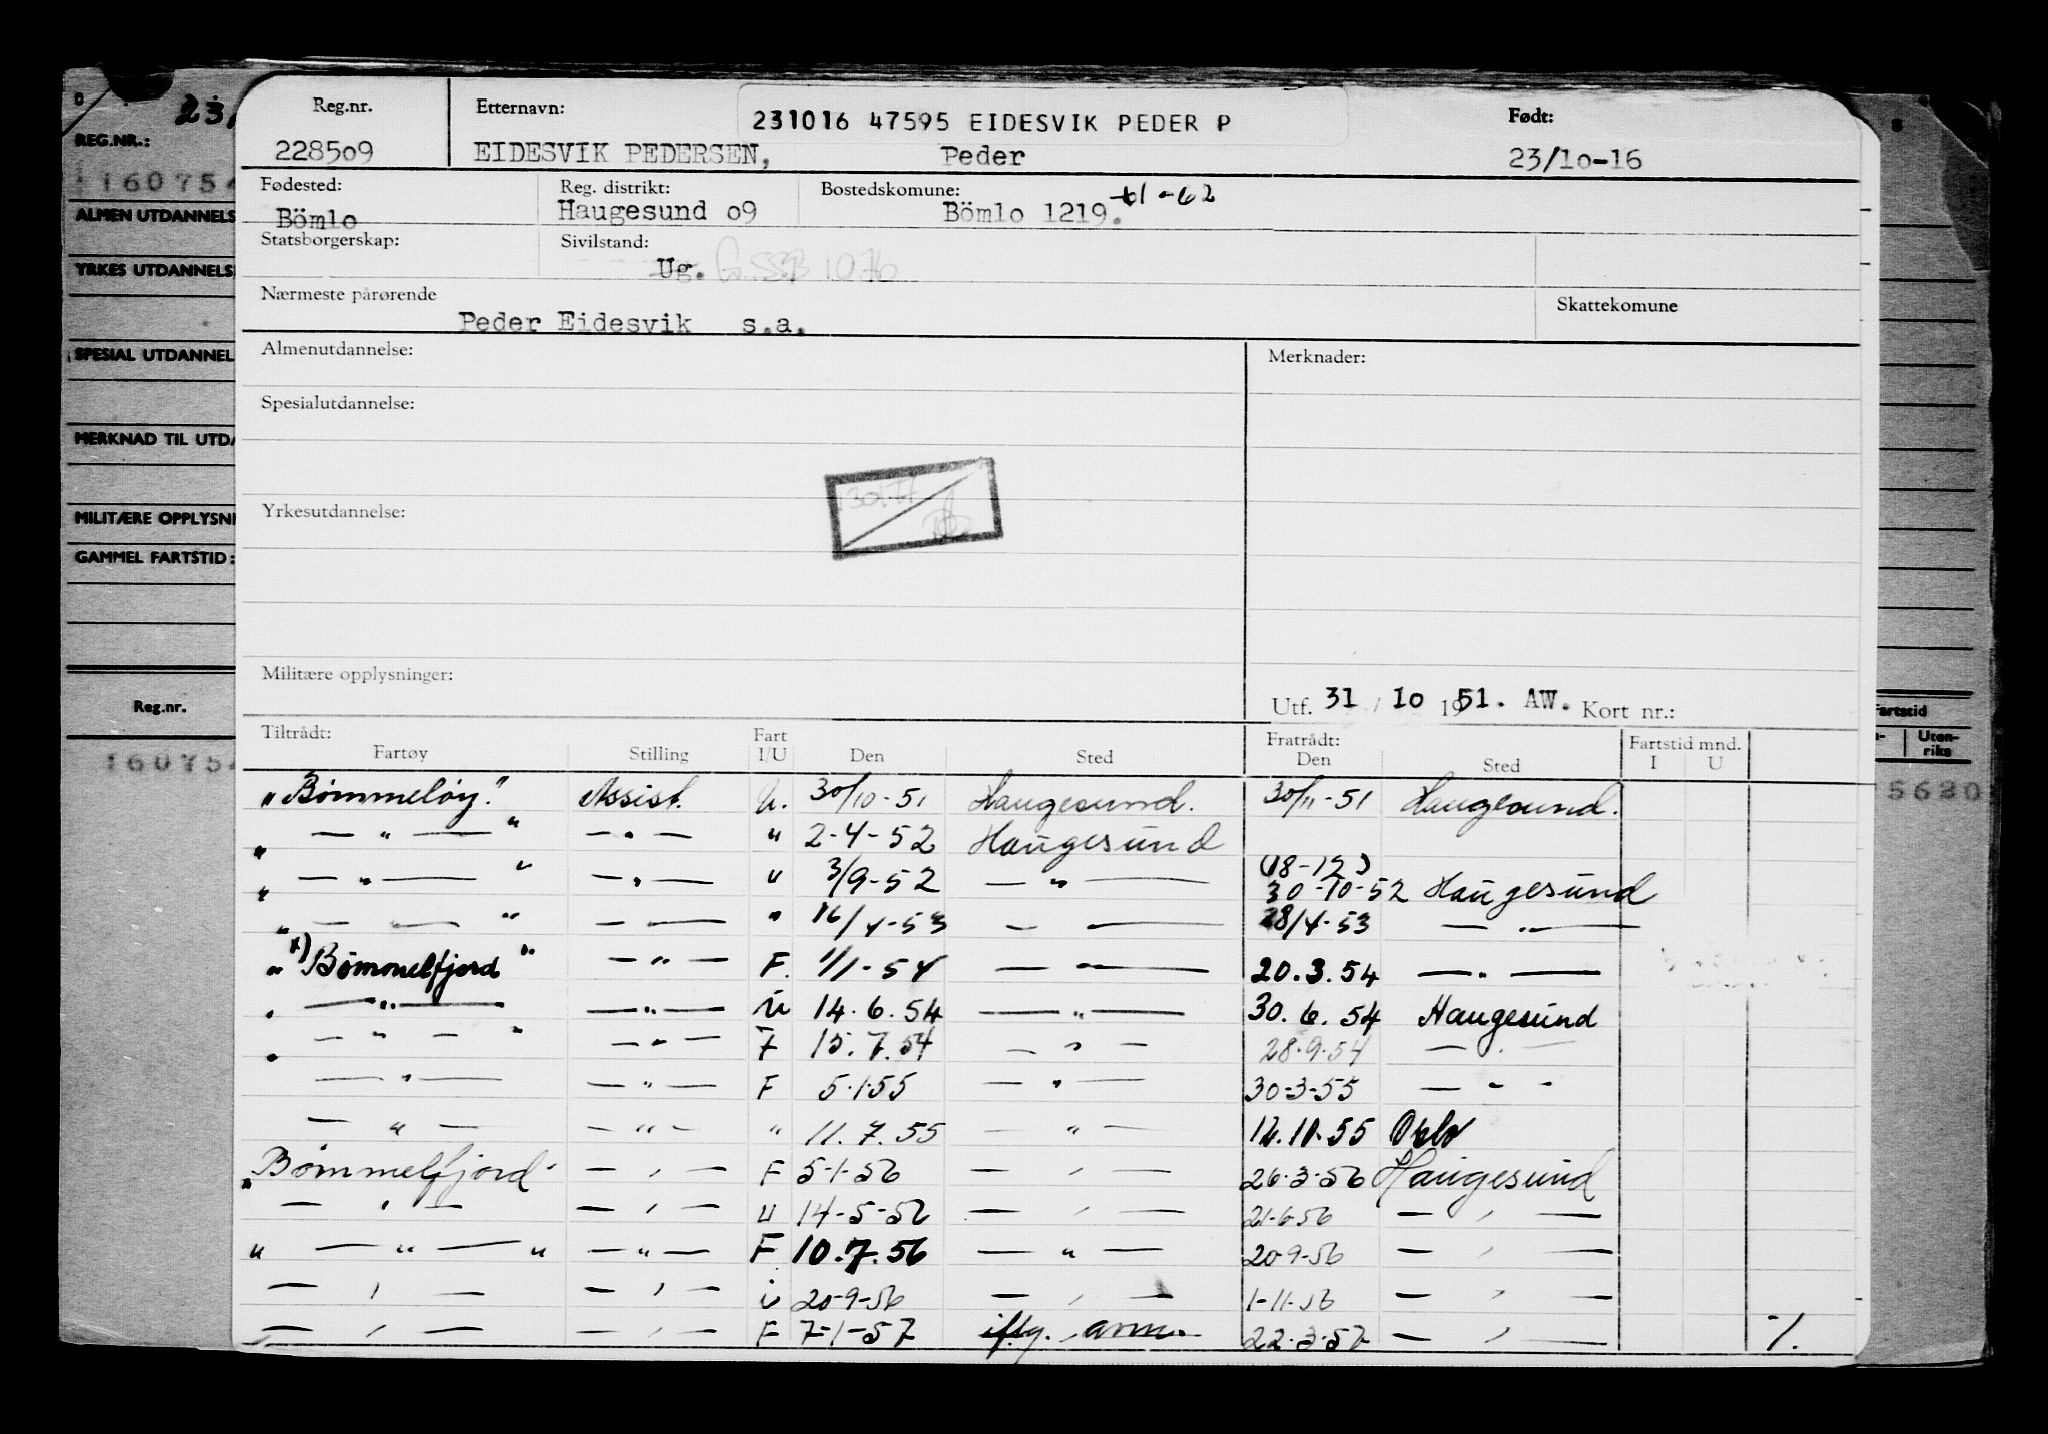 23,
REG.NR.:
160754
ALMEN UTDANNELS
YRKES UTDANNELS
SPESIAL UTDANNEL
MERKNAD TIL UTDA
MILITÆRE OPPLYSNI
GAMMEL FARTSTID:
Reg.nr.
160754
Reg.nr. Etternavn: 231016 47595 EIDESVIK PEDER P Født:
228509 EIDESVIK PEDERSEN, Peder 23/10-16
Fødested: Reg. distrikt: Bostedskomune: 1-62
Bömlo Haugesund 09 Bömlo 1219.
Statsborgerskap: Sivilstand:
Ug. G. SSB 1076
Nærmeste pårørende Skattekomune
Peder Eidesvik s.a.
Almenutdannelse: Merknader:
Spesialutdannelse:
Yrkesutdannelse:
Militære opplysninger:
Utf. 31 / 10 1951. AW. Kort nr.:
Tiltrådt: Fart Fratrådt: Fartstid mnd.
Fartøy Stilling I/U Den Sted Den Sted I U
"Bømmeløy." Assist. U. 30/10-51 Haugesund. 30/11-51 Haugesund.
" — " — " — " — " 2-4-52 Haugesund
(18-12)
" — " — " — " — " 3/9-52 — " — 30-10-52 Haugesund
" — — " — — " 16/4-53 — " — 28/4-53 — " —
" x) Bømmelfjord " — " — F. 1/1-54 — " — 20.3.54 — " —
" — " — — " — U 14.6.54 — " — 30.6.54 Haugesund
" — " — " — " — F 15.7.54 — " — 28.9.54 — " —
— " — — " — F 5.1.55 — " — 30-3-55 — " —
— " — — " — " 11.7.55 — " — 12.10.55 Oslo
"Bømmelfjord" — " — F 5-1-56 — " — 26.3.56 Haugesund
— " — — " — U 14-5-56 — " — 21-6-56 — " —
" — " — " — " — F 10.7.56 — " — 20-9-56 — " —
— " — — " — U 20-9-56 — " — 1-11-56 — " —
— " — — " — F 7-1-57 iflg. anm. 22.3.57 — " — -/.
Fartstid
Uten-
riks
5630